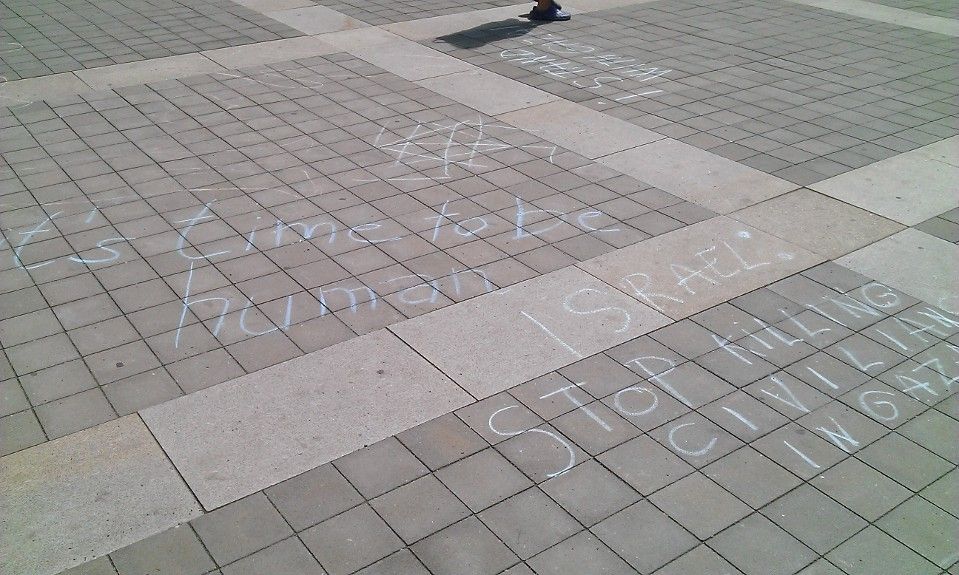 it's time to be
human
ISRAEL:
STOP KILLING
CIVILIANS
IN GAZA